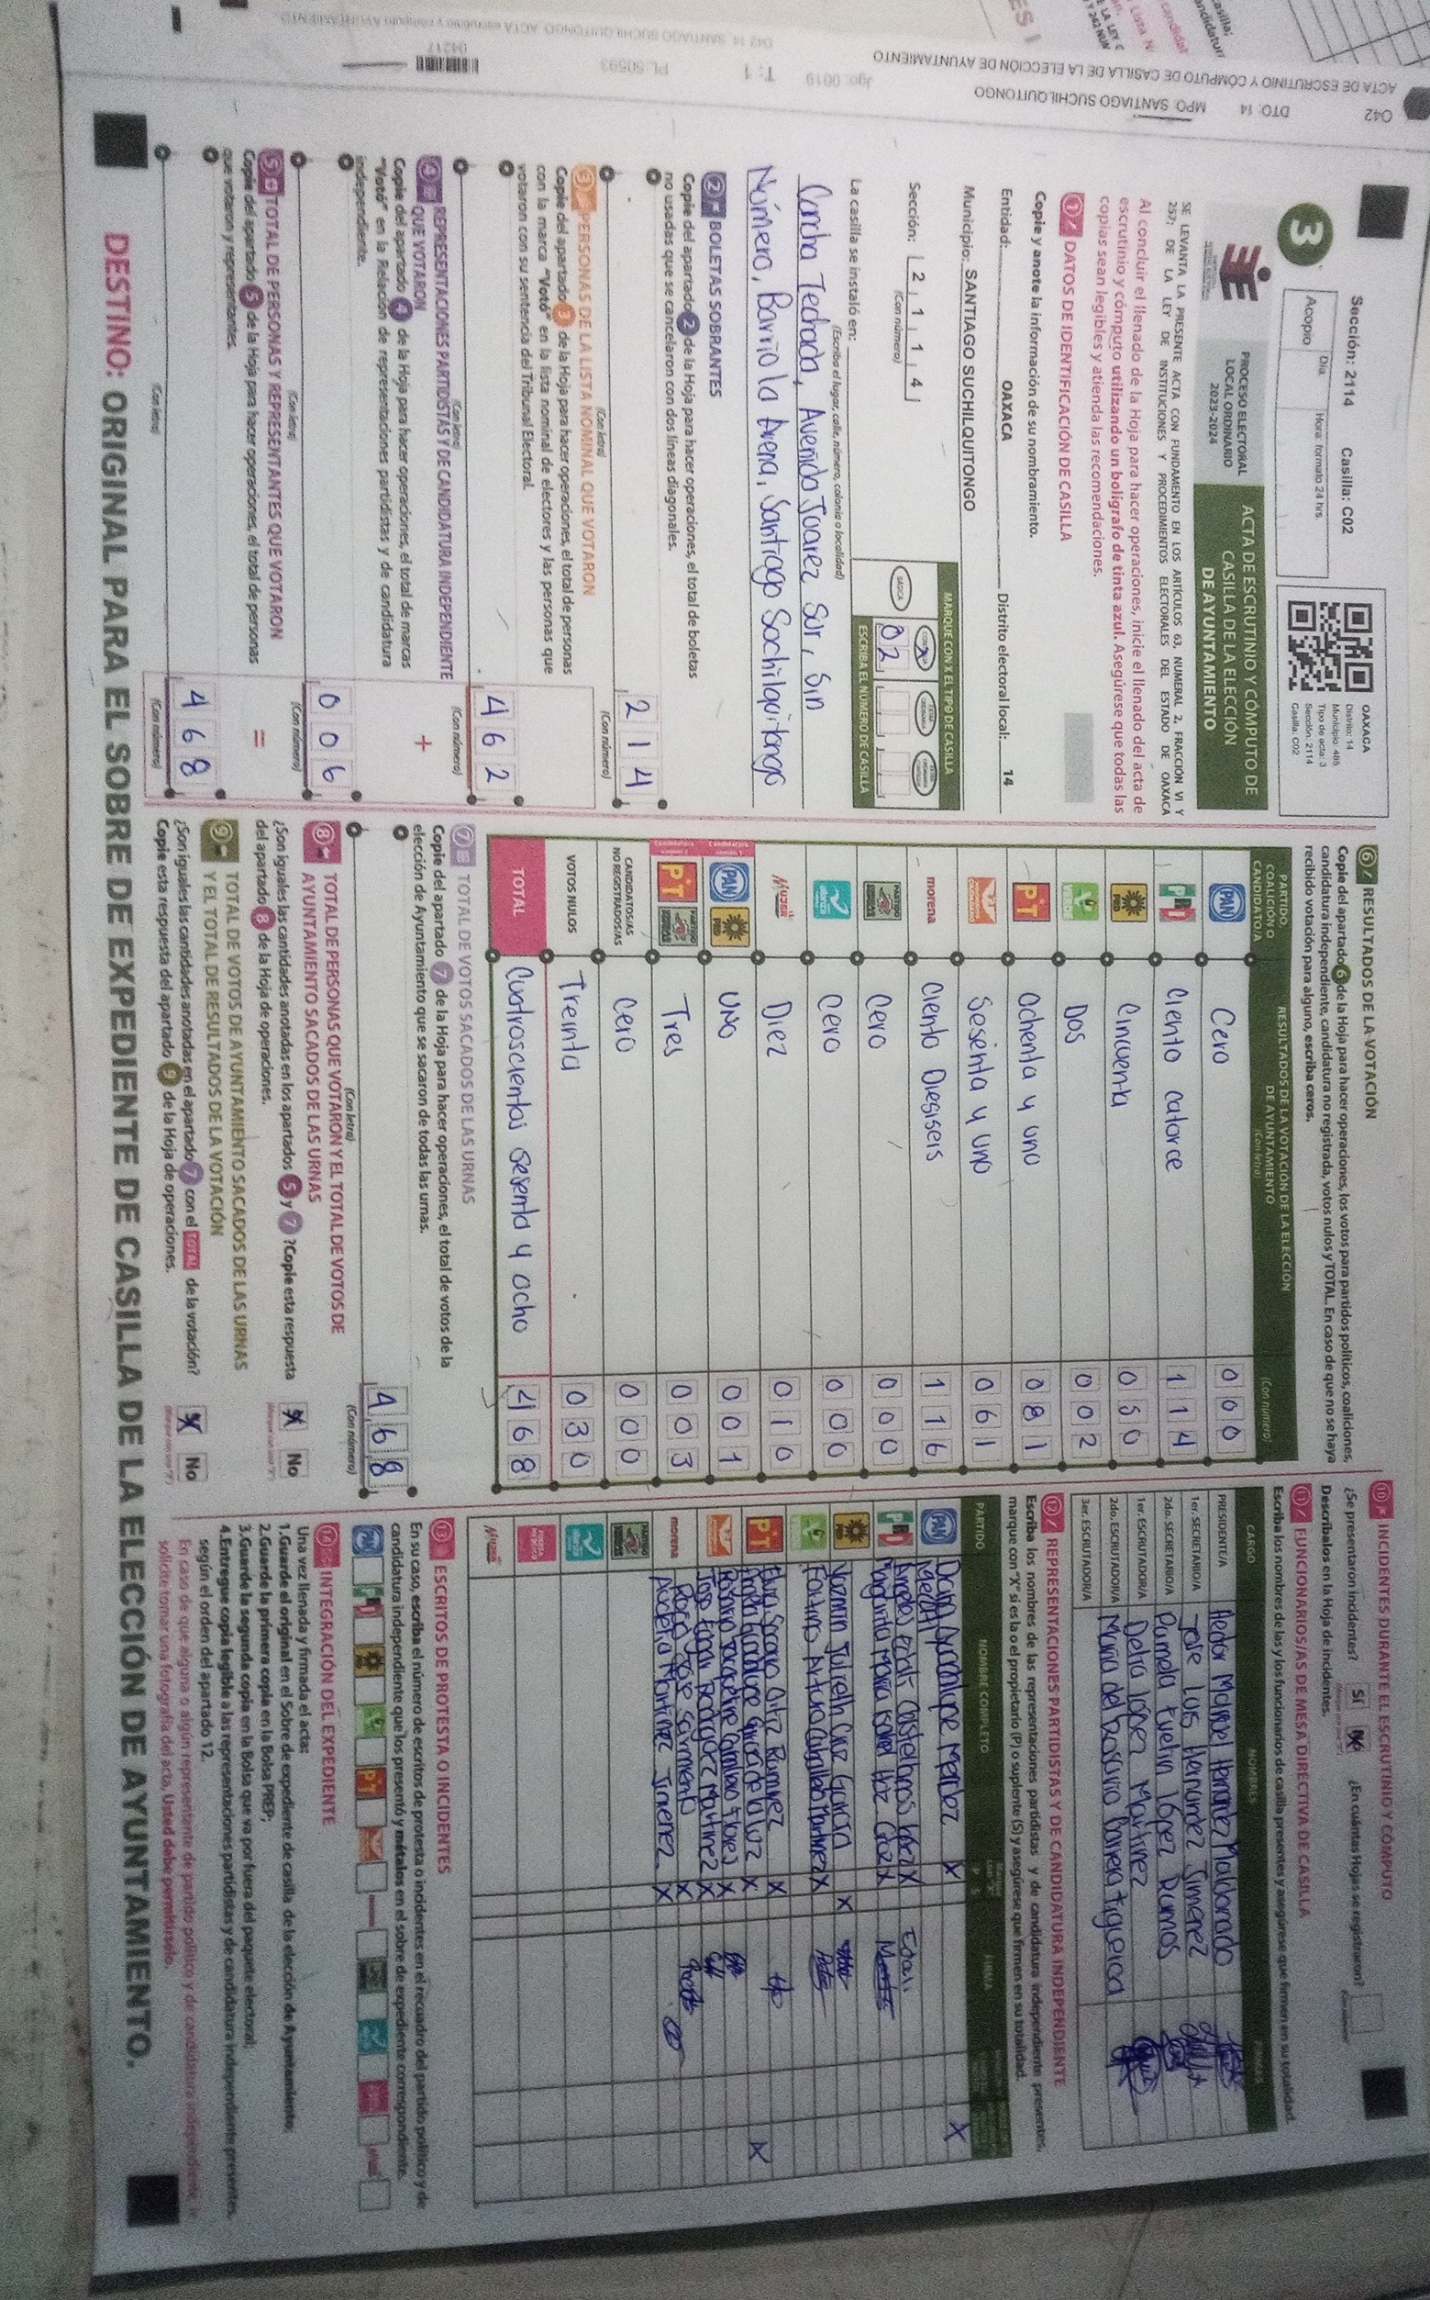 042
DTO. 14
MPO. SANTIAGO SUCHILQUITONGO
ACTA DE ESCRUTINIO Y CÓMPUTO DE CASILLA DE LA ELECCIÓN DE AYUNTAMIENTO
Sección: 2114 Casilla: C02
Acopio
Día
Hora: formato 24 hrs
OAXACA
Distrito: 14
Municipio: 485
Tipo de acta: 3
Sección: 2114
Casilla: C02
3
PROCESO ELECTORAL
LOCAL ORDINARIO
2023-2024
ACTA DE ESCRUTINIO Y CÓMPUTO DE
CASILLA DE LA ELECCIÓN
DE AYUNTAMIENTO
SE LEVANTA LA PRESENTE ACTA CON FUNDAMENTO EN LOS ARTÍCULOS 63, NUMERAL 2, FRACCIÓN VI Y
257; DE LA LEY DE INSTITUCIONES Y PROCEDIMIENTOS ELECTORALES DEL ESTADO DE OAXACA
Al concluir el llenado de la Hoja para hacer operaciones, inicie el llenado del acta de
escrutinio y cómputo utilizando un bolígrafo de tinta azul. Asegúrese que todas las
copias sean legibles y atienda las recomendaciones.
1 DATOS DE IDENTIFICACIÓN DE CASILLA
Copie y anote la información de su nombramiento.
Entidad: OAXACA Distrito electoral local: 14
Municipio: SANTIAGO SUCHILQUITONGO
Sección: 2 1 1 4
(Con número)
MARQUE CON X EL TIPO DE CASILLA
BÁSICA
02
ESCRIBA EL NÚMERO DE CASILLA
La casilla se instaló en:
(Escriba el lugar, calle, número, colonia o localidad)
Cancha Techada, Avenida Juarez Sur, Sin
Número, Barrio la Arena, Santiago Suchilquitongo
2 BOLETAS SOBRANTES
Copie del apartado 2 de la Hoja para hacer operaciones, el total de boletas
no usadas que se cancelaron con dos líneas diagonales.
2 1 4
(Con letra) (Con número)
3 PERSONAS DE LA LISTA NOMINAL QUE VOTARON
Copie del apartado 3 de la Hoja para hacer operaciones, el total de personas
con la marca "Votó" en la lista nominal de electores y las personas que
votaron con su sentencia del Tribunal Electoral.
4 6 2
(Con letra) (Con número)
4 REPRESENTACIONES PARTIDISTAS Y DE CANDIDATURA INDEPENDIENTE
QUE VOTARON
+
Copie del apartado 4 de la Hoja para hacer operaciones, el total de marcas
"Votó" en la Relación de representaciones partidistas y de candidatura
independiente.
0 0 6
(Con letra) (Con número)
5 TOTAL DE PERSONAS Y REPRESENTANTES QUE VOTARON
=
Copie del apartado 5 de la Hoja para hacer operaciones, el total de personas
que votaron y representantes.
4 6 8
(Con letra) (Con número)
6 RESULTADOS DE LA VOTACIÓN
Copie del apartado 6 de la Hoja para hacer operaciones, los votos para partidos políticos, coaliciones,
candidatura independiente, candidatura no registrada, votos nulos y TOTAL. En caso de que no se haya
recibido votación para alguno, escriba ceros.
PARTIDO, COALICIÓN O CANDIDATO/A
RESULTADOS DE LA VOTACIÓN DE LA ELECCIÓN DE AYUNTAMIENTO
(Con letra) (Con número)
PAN Cero 0 0 0
PRI Ciento catorce 1 1 4
PRD Cincuenta 0 5 0
VERDE Dos 0 0 2
PT Ochenta y uno 0 8 1
Sesenta y uno 0 6 1
morena Ciento Diesiseis 1 1 6
Cero 0 0 0
Cero 0 0 0
MUJER Diez 0 1 0
PAN PRD UNO 0 0 1
PT Tres 0 0 3
CANDIDATOS/AS NO REGISTRADOS/AS Cero 0 0 0
VOTOS NULOS Treinta 0 3 0
TOTAL Cuatroscientos sesenta y ocho 4 6 8
7 TOTAL DE VOTOS SACADOS DE LAS URNAS
Copie del apartado 7 de la Hoja para hacer operaciones, el total de votos de la
elección de Ayuntamiento que se sacaron de todas las urnas.
4 6 8
(Con letra) (Con número)
8 TOTAL DE PERSONAS QUE VOTARON Y EL TOTAL DE VOTOS DE
AYUNTAMIENTO SACADOS DE LAS URNAS
¿Son iguales las cantidades anotadas en los apartados 5 y 7 ? Copie esta respuesta
del apartado 8 de la Hoja de operaciones.
No
9 TOTAL DE VOTOS DE AYUNTAMIENTO SACADOS DE LAS URNAS
Y EL TOTAL DE RESULTADOS DE LA VOTACIÓN
¿Son iguales las cantidades anotadas en el apartado 7 con el TOTAL de la votación?
Copie esta respuesta del apartado 9 de la Hoja de operaciones.
No
10 INCIDENTES DURANTE EL ESCRUTINIO Y CÓMPUTO
¿Se presentaron incidentes? Sí ¿En cuántas Hojas se registraron?
Descríbalos en la Hoja de incidentes.
11 FUNCIONARIOS/AS DE MESA DIRECTIVA DE CASILLA
Escriba los nombres de las y los funcionarios de casilla presentes y asegúrese que firmen en su totalidad.
CARGO NOMBRES FIRMAS
PRESIDENTE/A Hector Manuel Hernandez Maldonado
1er. SECRETARIO/A Jose Luis Hernandez Jimenez
2do. SECRETARIO/A Pamela Evelin López Ramos
1er. ESCRUTADOR/A Delia López Martinez
2do. ESCRUTADOR/A Maria del Rosario Barrera Figueroa
3er. ESCRUTADOR/A
12 REPRESENTACIONES PARTIDISTAS Y DE CANDIDATURA INDEPENDIENTE
Escriba los nombres de las representaciones partidistas y de candidatura independiente presentes,
marque con "X" si es la o el propietario (P) o suplente (S) y asegúrese que firmen en su totalidad.
PARTIDO NOMBRE COMPLETO FIRMA
13 ESCRITOS DE PROTESTA O INCIDENTES
En su caso, escriba el número de escritos de protesta o incidentes en el recuadro del partido político y de
candidatura independiente que los presentó y métalos en el sobre de expediente correspondiente.
14 INTEGRACIÓN DEL EXPEDIENTE
Una vez llenada y firmada el acta:
1.Guarde el original en el Sobre de expediente de casilla de la elección de Ayuntamiento;
2.Guarde la primera copia en la Bolsa PREP;
3.Guarde la segunda copia en la Bolsa que va por fuera del paquete electoral;
4.Entregue copia legible a las representaciones partidistas y de candidatura independiente presentes,
según el orden del apartado 12.
En caso de que alguna o algún representante de partido político y de candidatura independiente, le
solicite tomar una fotografía del acta, Usted debe permitírselo.
DESTINO: ORIGINAL PARA EL SOBRE DE EXPEDIENTE DE CASILLA DE LA ELECCIÓN DE AYUNTAMIENTO.